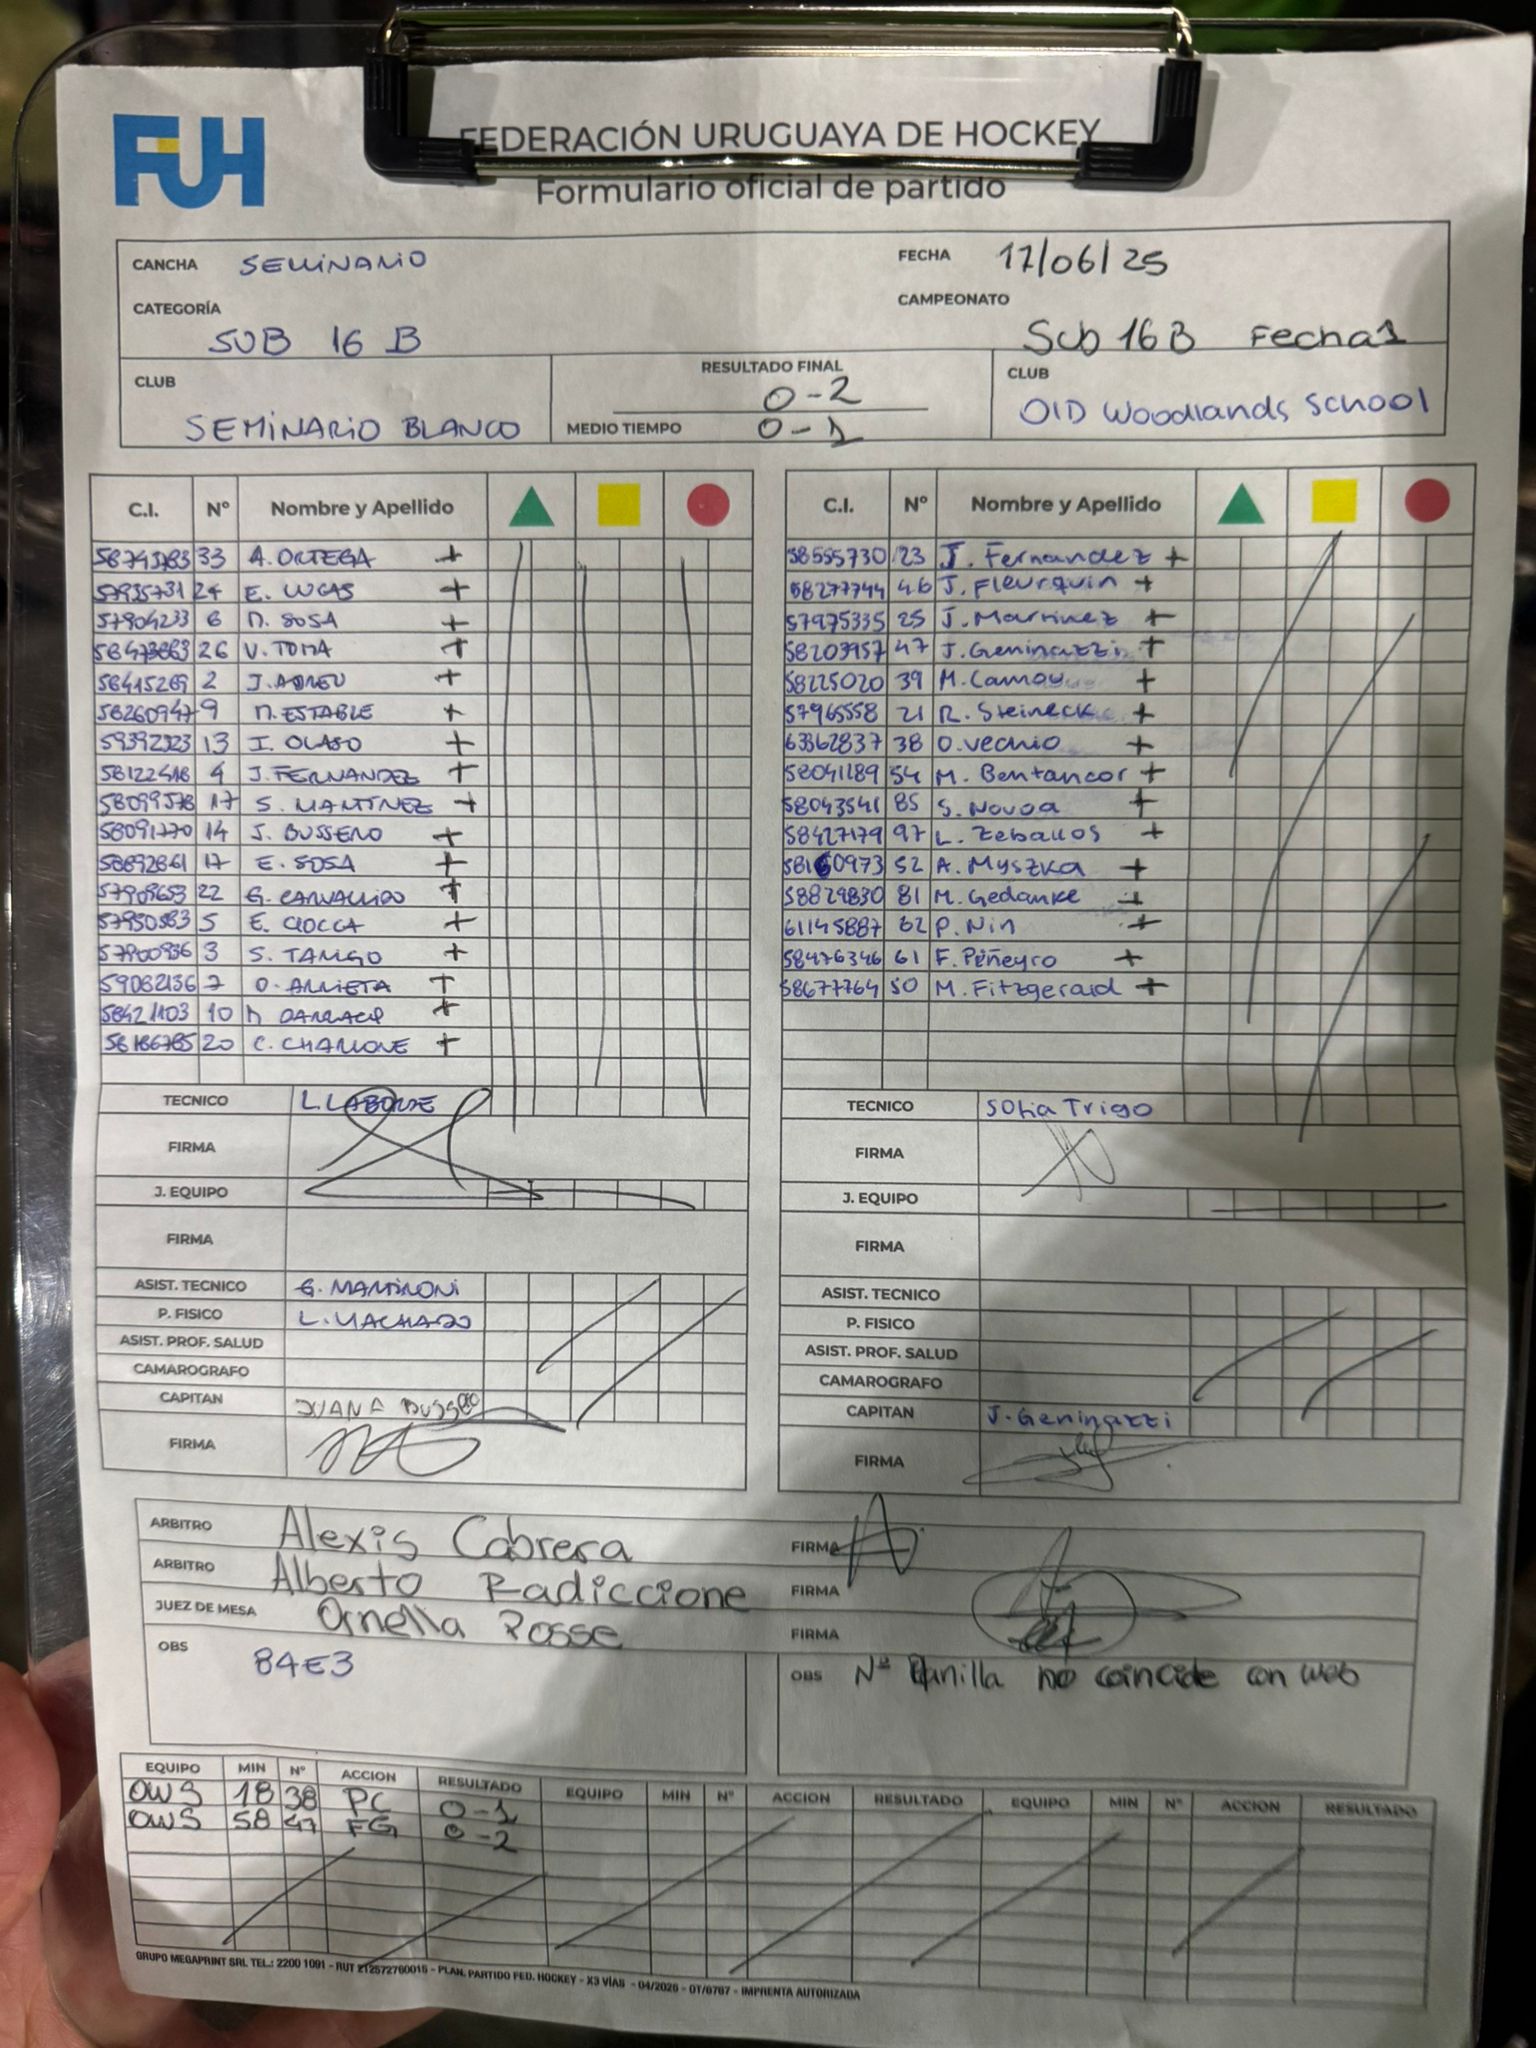 FUH
FEDERACIÓN URUGUAYA DE HOCKEY
Formulario oficial de partido
CANCHA SEMINARIO FECHA 17/06/25
CATEGORÍA CAMPEONATO
SUB 16 B Sub 16B Fecha 1
CLUB RESULTADO FINAL CLUB
0-2
SEMINARIO BLANCO MEDIO TIEMPO 0-1 OlD Woodlands School
C.I. Nº Nombre y Apellido
58743783 33 A. ORTEGA +
57935731 24 E. LUCAS +
57904233 6 M. SOSA +
26 V. TOMA +
58415269 2 J. ABREU +
58260947 9 M. ESTABLE +
59392323 13 I. OLASO +
58122418 4 J. FERNANDEZ +
58099578 17 S. MARTINEZ +
58091770 14 J. BUSSERO +
58892861 17 E. SOSA +
57909653 22 G. CARVALLIDO +
57950583 5 E. CIOCCA +
57900936 3 S. TAMGO +
59062136 7 O. ARRIETA +
58421103 10 M
58186785 20 C. CHARLONE +
TECNICO L. LABORDE
FIRMA
J. EQUIPO
FIRMA
ASIST. TECNICO G. MARTIRONI
P. FISICO L. MACHADO
ASIST. PROF. SALUD
CAMAROGRAFO
CAPITAN JUANA BUSSERO
FIRMA
C.I. Nº Nombre y Apellido
58555730 23 J. Fernandez +
58277744 46 J. Fleurquin +
57975335 25 J. Martinez +
58203957 47 J. Geninazzi +
58225020 39 M. Camou +
57965558 21 R. Steineck +
63362837 38 O. Vechio +
58041189 54 M. Bentancor +
58043541 85 S. Novoa +
58427179 97 L. Zeballos +
58160973 52 A. Myszka +
58829830 81 M. Gedanke +
61145887 62 P. Nin +
58476346 61 F. Piñeyro +
58677764 50 M. Fitzgerald +
TECNICO Sofia Trigo
FIRMA
J. EQUIPO
FIRMA
ASIST. TECNICO
P. FISICO
ASIST. PROF. SALUD
CAMAROGRAFO
CAPITAN J. Geninazzi
FIRMA
ARBITRO Alexis Cabrera FIRMA
ARBITRO Alberto Radiccione FIRMA
JUEZ DE MESA Ornella Posse FIRMA
OBS 84E3 OBS Nº Planilla no coincide con web
EQUIPO MIN Nº ACCION RESULTADO EQUIPO MIN Nº ACCION RESULTADO EQUIPO MIN Nº ACCION RESULTADO
OWS 18 38 PC 0-1
OWS 58 47 FG 0-2
GRUPO MEGAPRINT SRL TEL.: 2200 1091 - RUT 212572760015 - PLAN. PARTIDO FED. HOCKEY - X3 VÍAS - 04/2025 - OT/6767 - IMPRENTA AUTORIZADA